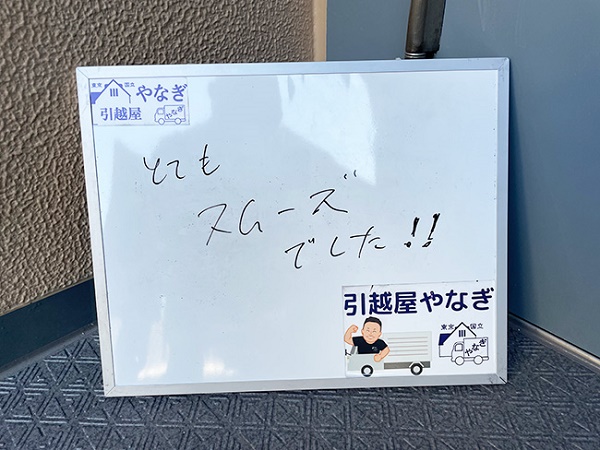 東京 国立
やなぎ
引越屋
やなぎ
とても
スムーズ
でした!!
引越屋やなぎ
東京 国立
やなぎ